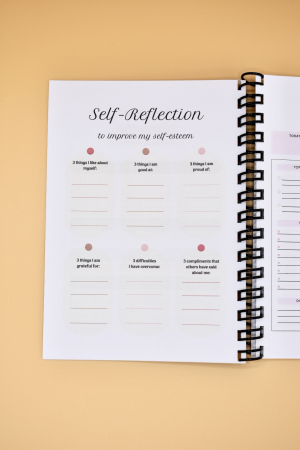 Self-Reflection
to improve my self-esteem
3 things I like about
myself:
3 things I am
good at:
3 things I am
proud of:
3 things I am
grateful for:
3 difficulties
I have overcome:
3 compliments that
others have said
about me: